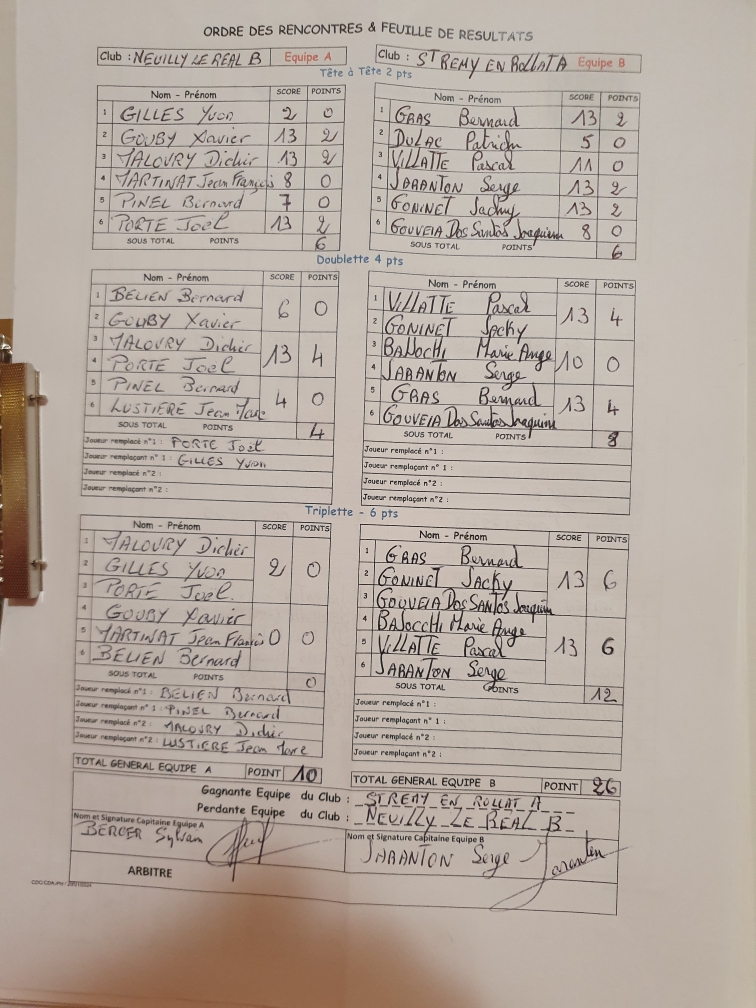 ORDRE DES RENCONTRES & FEUILLE DE RESULTATS
Club : NEUILLY LE REAL B Equipe A
Club : ST REMY EN ROLLAT A Equipe B
Tête à Tête 2 pts
Nom - Prénom SCORE POINTS
1 GILLES Yvon 2 0
2 GOUBY Xavier 13 2
3 MALOVRY Didier 13 2
4 MARTINAT Jean François 8 0
5 PINEL Bernard 7 0
6 PORTE Joel 13 2
SOUS TOTAL POINTS 6
Nom - Prénom SCORE POINTS
1 GRAS Bernard 13 2
2 DULAC Patrick 5 0
3 VILLATTE Pascal 11 0
4 JARANTON Serge 13 2
5 GONINET Jacky 13 2
6 GOUVEIA Dos Santos Joaquim 8 0
SOUS TOTAL POINTS 6
Doublette 4 pts
Nom - Prénom SCORE POINTS
1 BELIEN Bernard
2 GOUBY Xavier
6 0
3 MALOVRY Didier
4 PORTE Joel
13 4
5 PINEL Bernard
6 LUSTIERE Jean Marc
4 0
SOUS TOTAL POINTS 4
Joueur remplacé n°1 : PORTE Joel
Joueur remplaçant n° 1 : GILLES Yvon
Joueur remplacé n°2 :
Joueur remplaçant n°2 :
Nom - Prénom SCORE POINTS
1 VILLATTE Pascal
2 GONINET Jacky
13 4
3 BAJOCHI Marie Ange
4 JARANTON Serge
10 0
5 GRAS Bernard
6 GOUVEIA Dos Santos Joaquim
13 4
SOUS TOTAL POINTS 8
Joueur remplacé n°1 :
Joueur remplaçant n° 1 :
Joueur remplacé n°2 :
Joueur remplaçant n°2 :
Triplette - 6 pts
Nom - Prénom SCORE POINTS
1 MALOVRY Didier
2 GILLES Yvon
3 PORTE Joel
2 0
4 GOUBY Xavier
5 MARTINAT Jean François
6 BELIEN Bernard
0 0
SOUS TOTAL POINTS 0
Joueur remplacé n°1 : BELIEN Bernard
Joueur remplaçant n° 1 : PINEL Bernard
Joueur remplacé n°2 : MALOVRY Didier
Joueur remplaçant n°2 : LUSTIERE Jean Marc
Nom - Prénom SCORE POINTS
1 GRAS Bernard
2 GONINET Jacky
3 GOUVEIA Dos Santos Joaquim
13 6
4 BAJOCCHI Marie Ange
5 VILLATTE Pascal
6 JARANTON Serge
13 6
SOUS TOTAL POINTS 12
Joueur remplacé n°1 :
Joueur remplaçant n° 1 :
Joueur remplacé n°2 :
Joueur remplaçant n°2 :
TOTAL GENERAL EQUIPE A POINT 10
TOTAL GENERAL EQUIPE B POINT 26
Gagnante Equipe du Club : ST REMY EN ROLLAT A
Perdante Equipe du Club : NEUILLY LE REAL B
Nom et Signature Capitaine Equipe A
BERGER Sylvain
Nom et Signature Capitaine Equipe B
JARANTON Serge Jaranton
ARBITRE